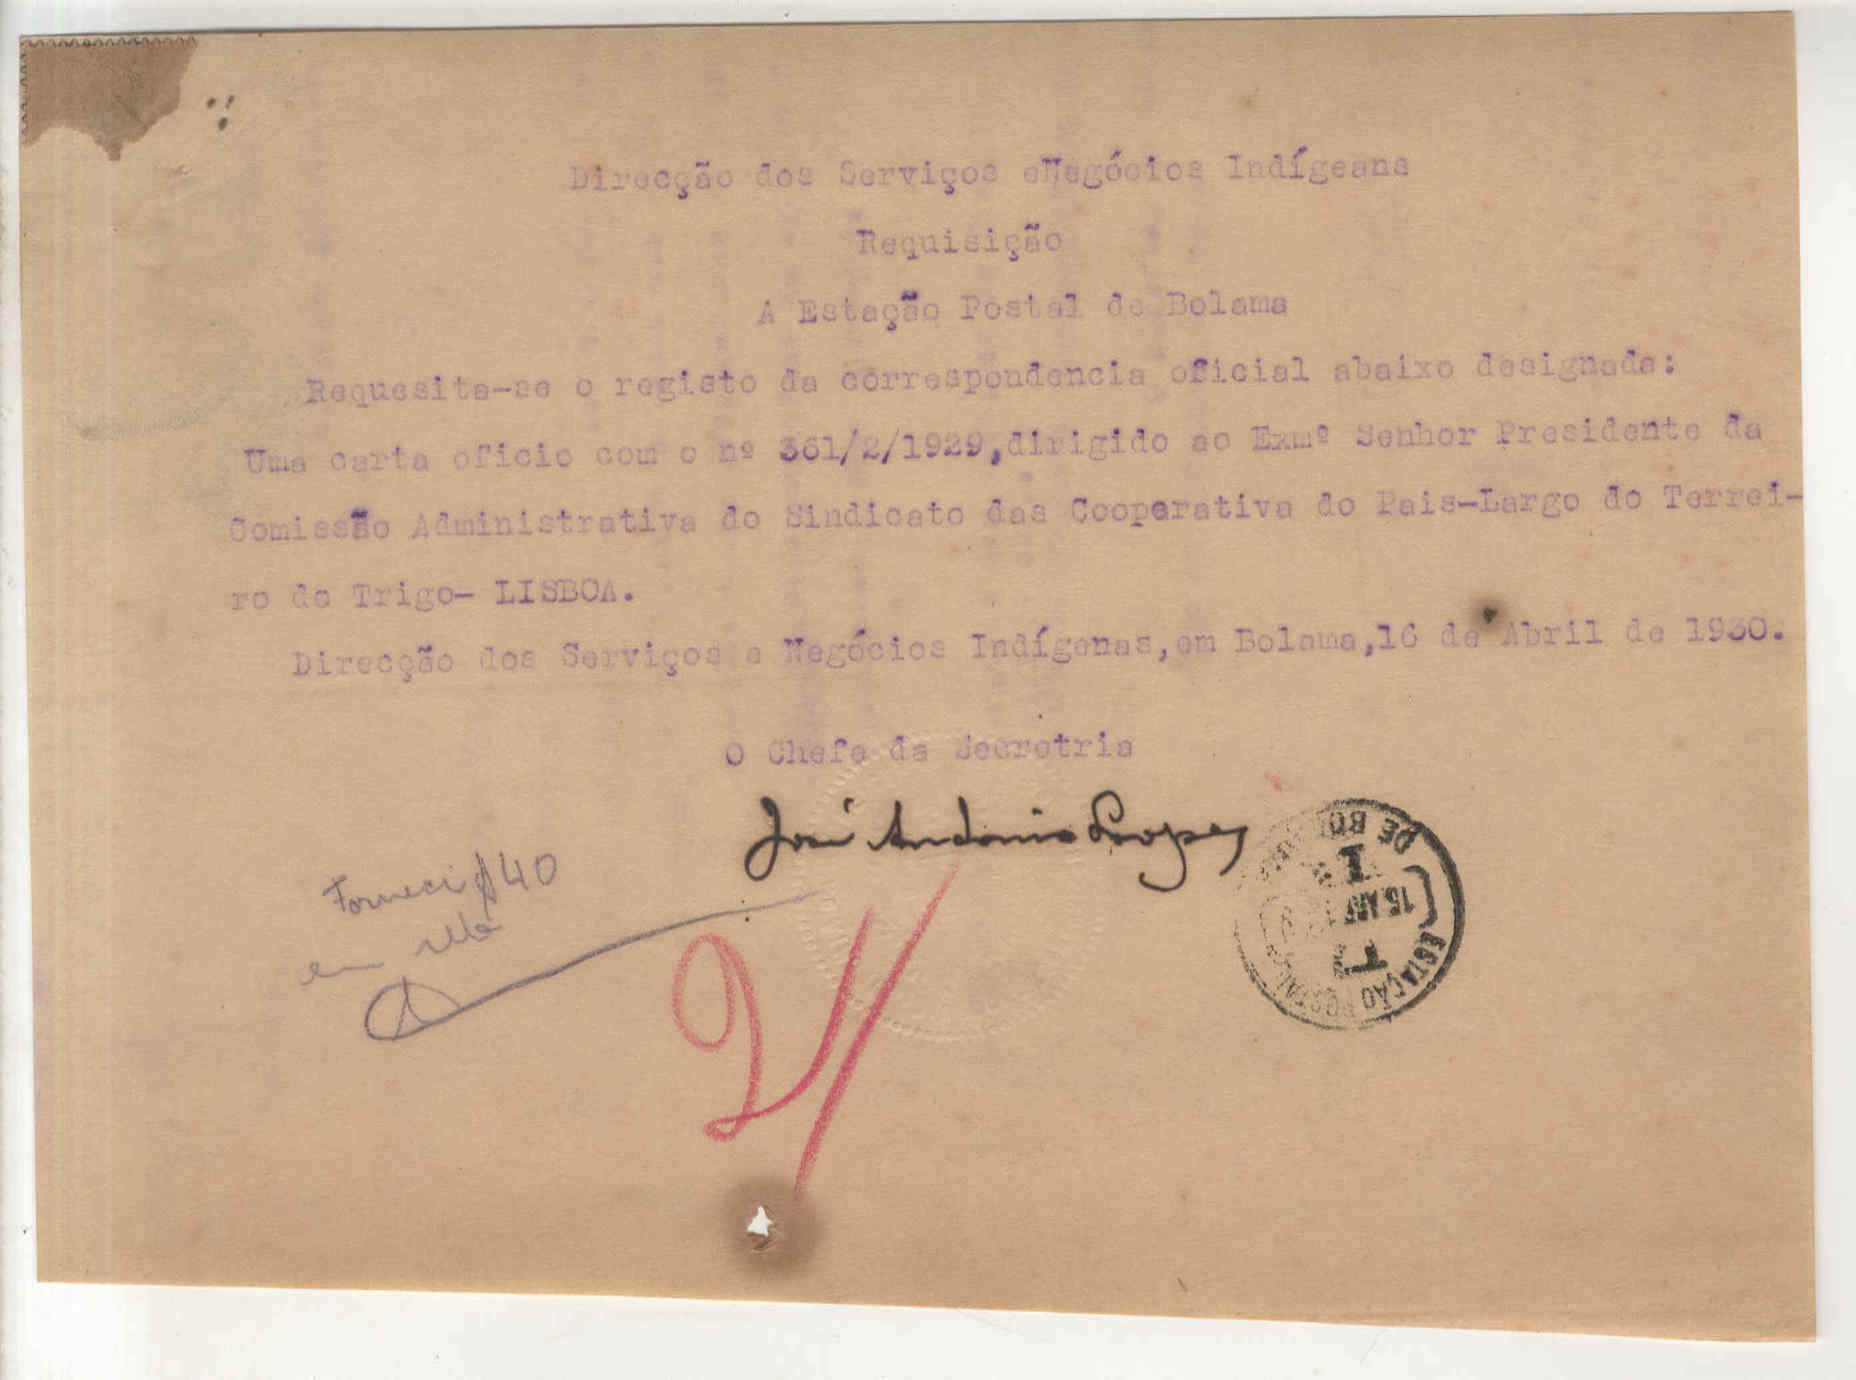 Direcção dos Serviços eNegócios Indígeans
Requisição
A Estação Postal de Bolama
Requesita-se o registo da correspondencia oficial abaixo designada:
Uma carta oficio com o nº 361/2/1929,dirigido ao Exmº Senhor Presidente da
Comissão Administrativa do Sindicato das Cooperativa do Pais-Largo do Terrei-
ro do Trigo- LISBOA.
Direcção dos Serviços e Negócios Indígenas,em Bolama,16 de Abril de 1930.
O Chefe da Secretria
José Antonio Lopes
Forneci $40
em
21
ESTAÇÃO POSTAL
DE BOLAMA